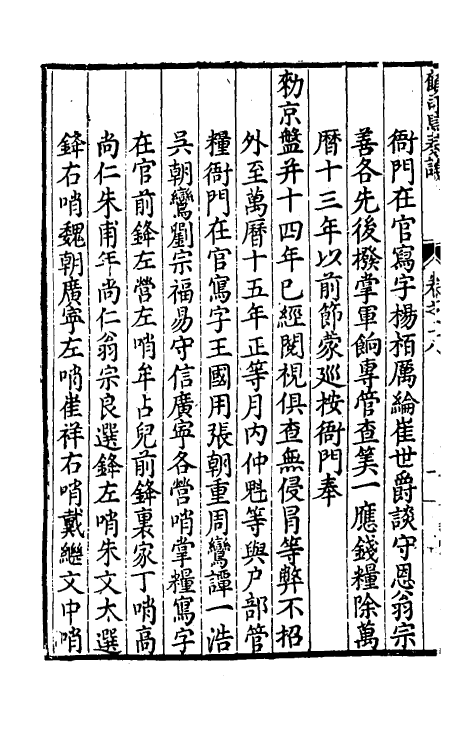 衙門在官寫字楊栢厲綸崔世爵談守恩翁宗
善各先後撥掌軍餉專管查筭一應錢糧除萬
曆十三年以前節蒙巡按衙門奉
勑京盤并十四年已經閱視俱查無侵冐等弊不招
外至萬曆十五年正等月內仲魁等與户部管
糧衙門在官寫字王國用張朝重周鸞譚一浩
吳朝鸞劉宗福易守信廣寧各營哨掌糧寫字
在官前鋒左營左哨牟占兒前鋒裏家丁哨高
尚仁朱甫年尚仁翁宗良選鋒左哨朱文太選
鋒右哨魏朝廣寧左哨崔祥右哨戴繼文中哨